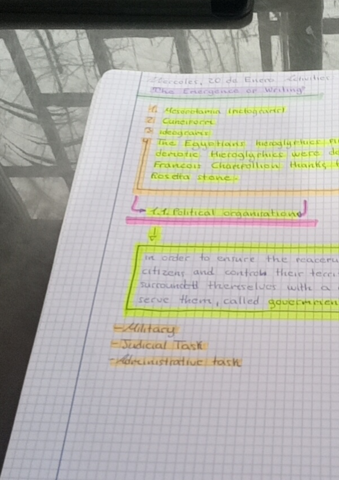 Miercoles, 20 de Enero. Activities
"The Emergence of Writing"
1. Mesopotamia (pictograms)
2. Cuneiform
3. Ideograms
4. The Egyptians hieroglyphics
demotic Hieroglyphics were de
François Champollion thanks t
Rosetta stone.
1.1. Political organisation
In order to ensure the
citizens and control their terri
surrounded themselves with a
serve them, called governmen
- Military
- Judicial Task
- Administrative task